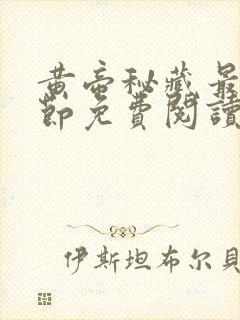 黃帝秘藏最
節免費閱讀
伊斯坦布尔貝